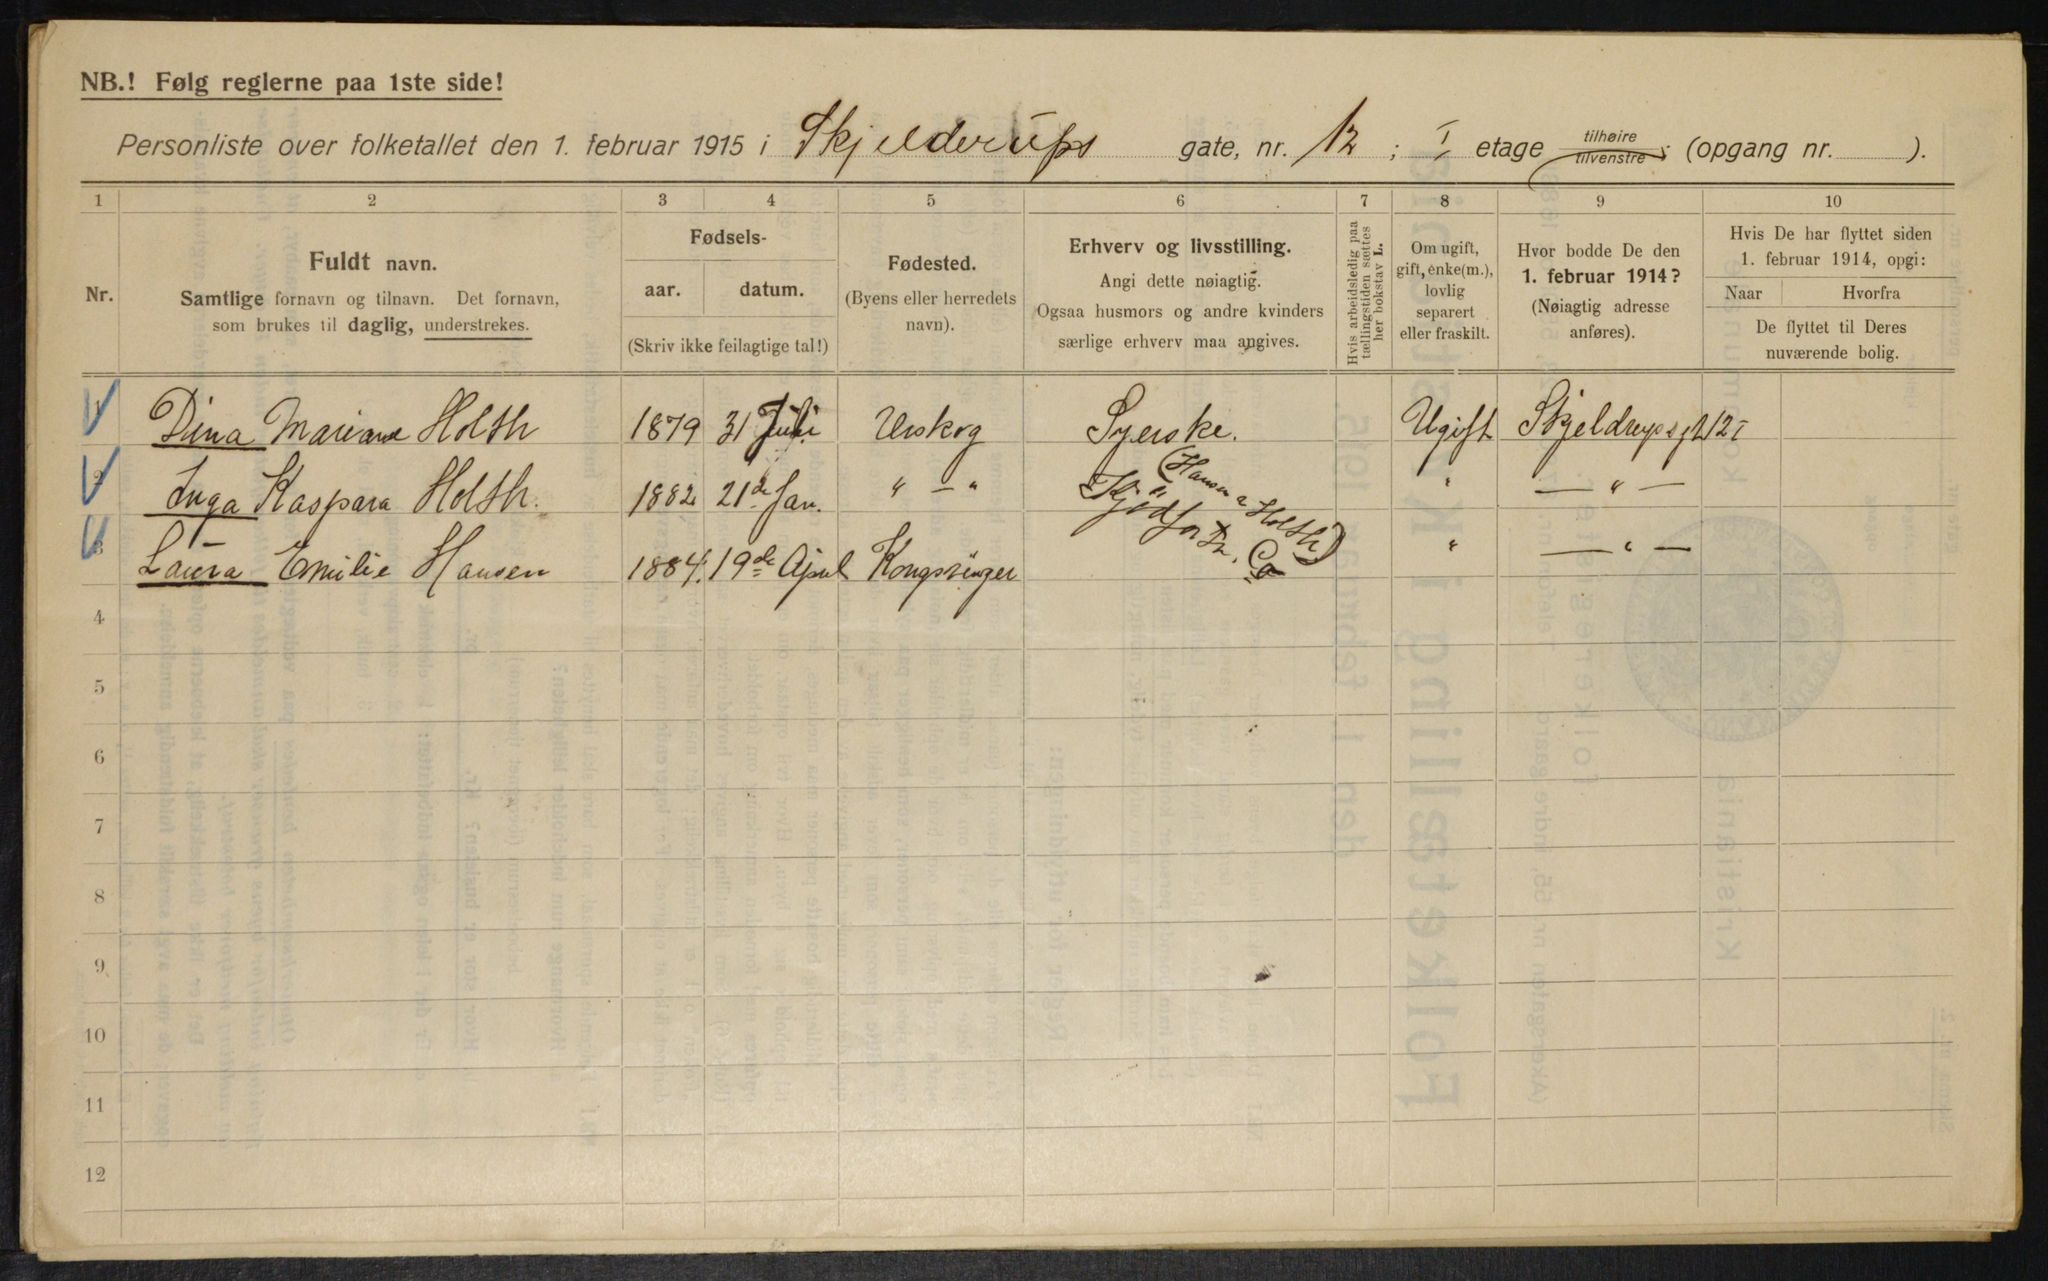 NB.! Følg reglerne paa 1ste side!
Personliste over folketallet den 1. februar 1915 i Skjelderups gate, nr. 12 ; I etage tilhøire tilvenstre ; (opgang nr. ).
1 2 3 4 5 6 7 8 9 10
Nr.
Fuldt navn.
Samtlige fornavn og tilnavn. Det fornavn,
som brukes til daglig, understrekes.
Fødsels-
aar. datum.
(Skriv ikke feilagtige tal!)
Fødested.
(Byens eller herredets
navn).
Erhverv og livsstilling.
Angi dette nøiagtig.
Ogsaa husmors og andre kvinders
særlige erhverv maa angives.
Hvis arbeidsledig paa
tællingstiden sættes
her bokstav L.
Om ugift,
gift, enke(m.),
lovlig
separert
eller fraskilt.
Hvor bodde De den
1. februar 1914?
(Nøiagtig adresse
anføres).
Hvis De har flyttet siden
1. februar 1914, opgi:
Naar Hvorfra
De flyttet til Deres
nuværende bolig.
1 Dina Mariane Holth 1879 31 Juli Urskog Syerske. Ugift Skjeldrupsgt 12 I
2 Inga Kaspara Holth. 1882 21de Jan. " — " " — " —
(Hansen & Holth)
3 Laura Emilie Hansen 1884. 19de April Kongsvinger " — " —
4
5
6
7
8
9
10
11
12